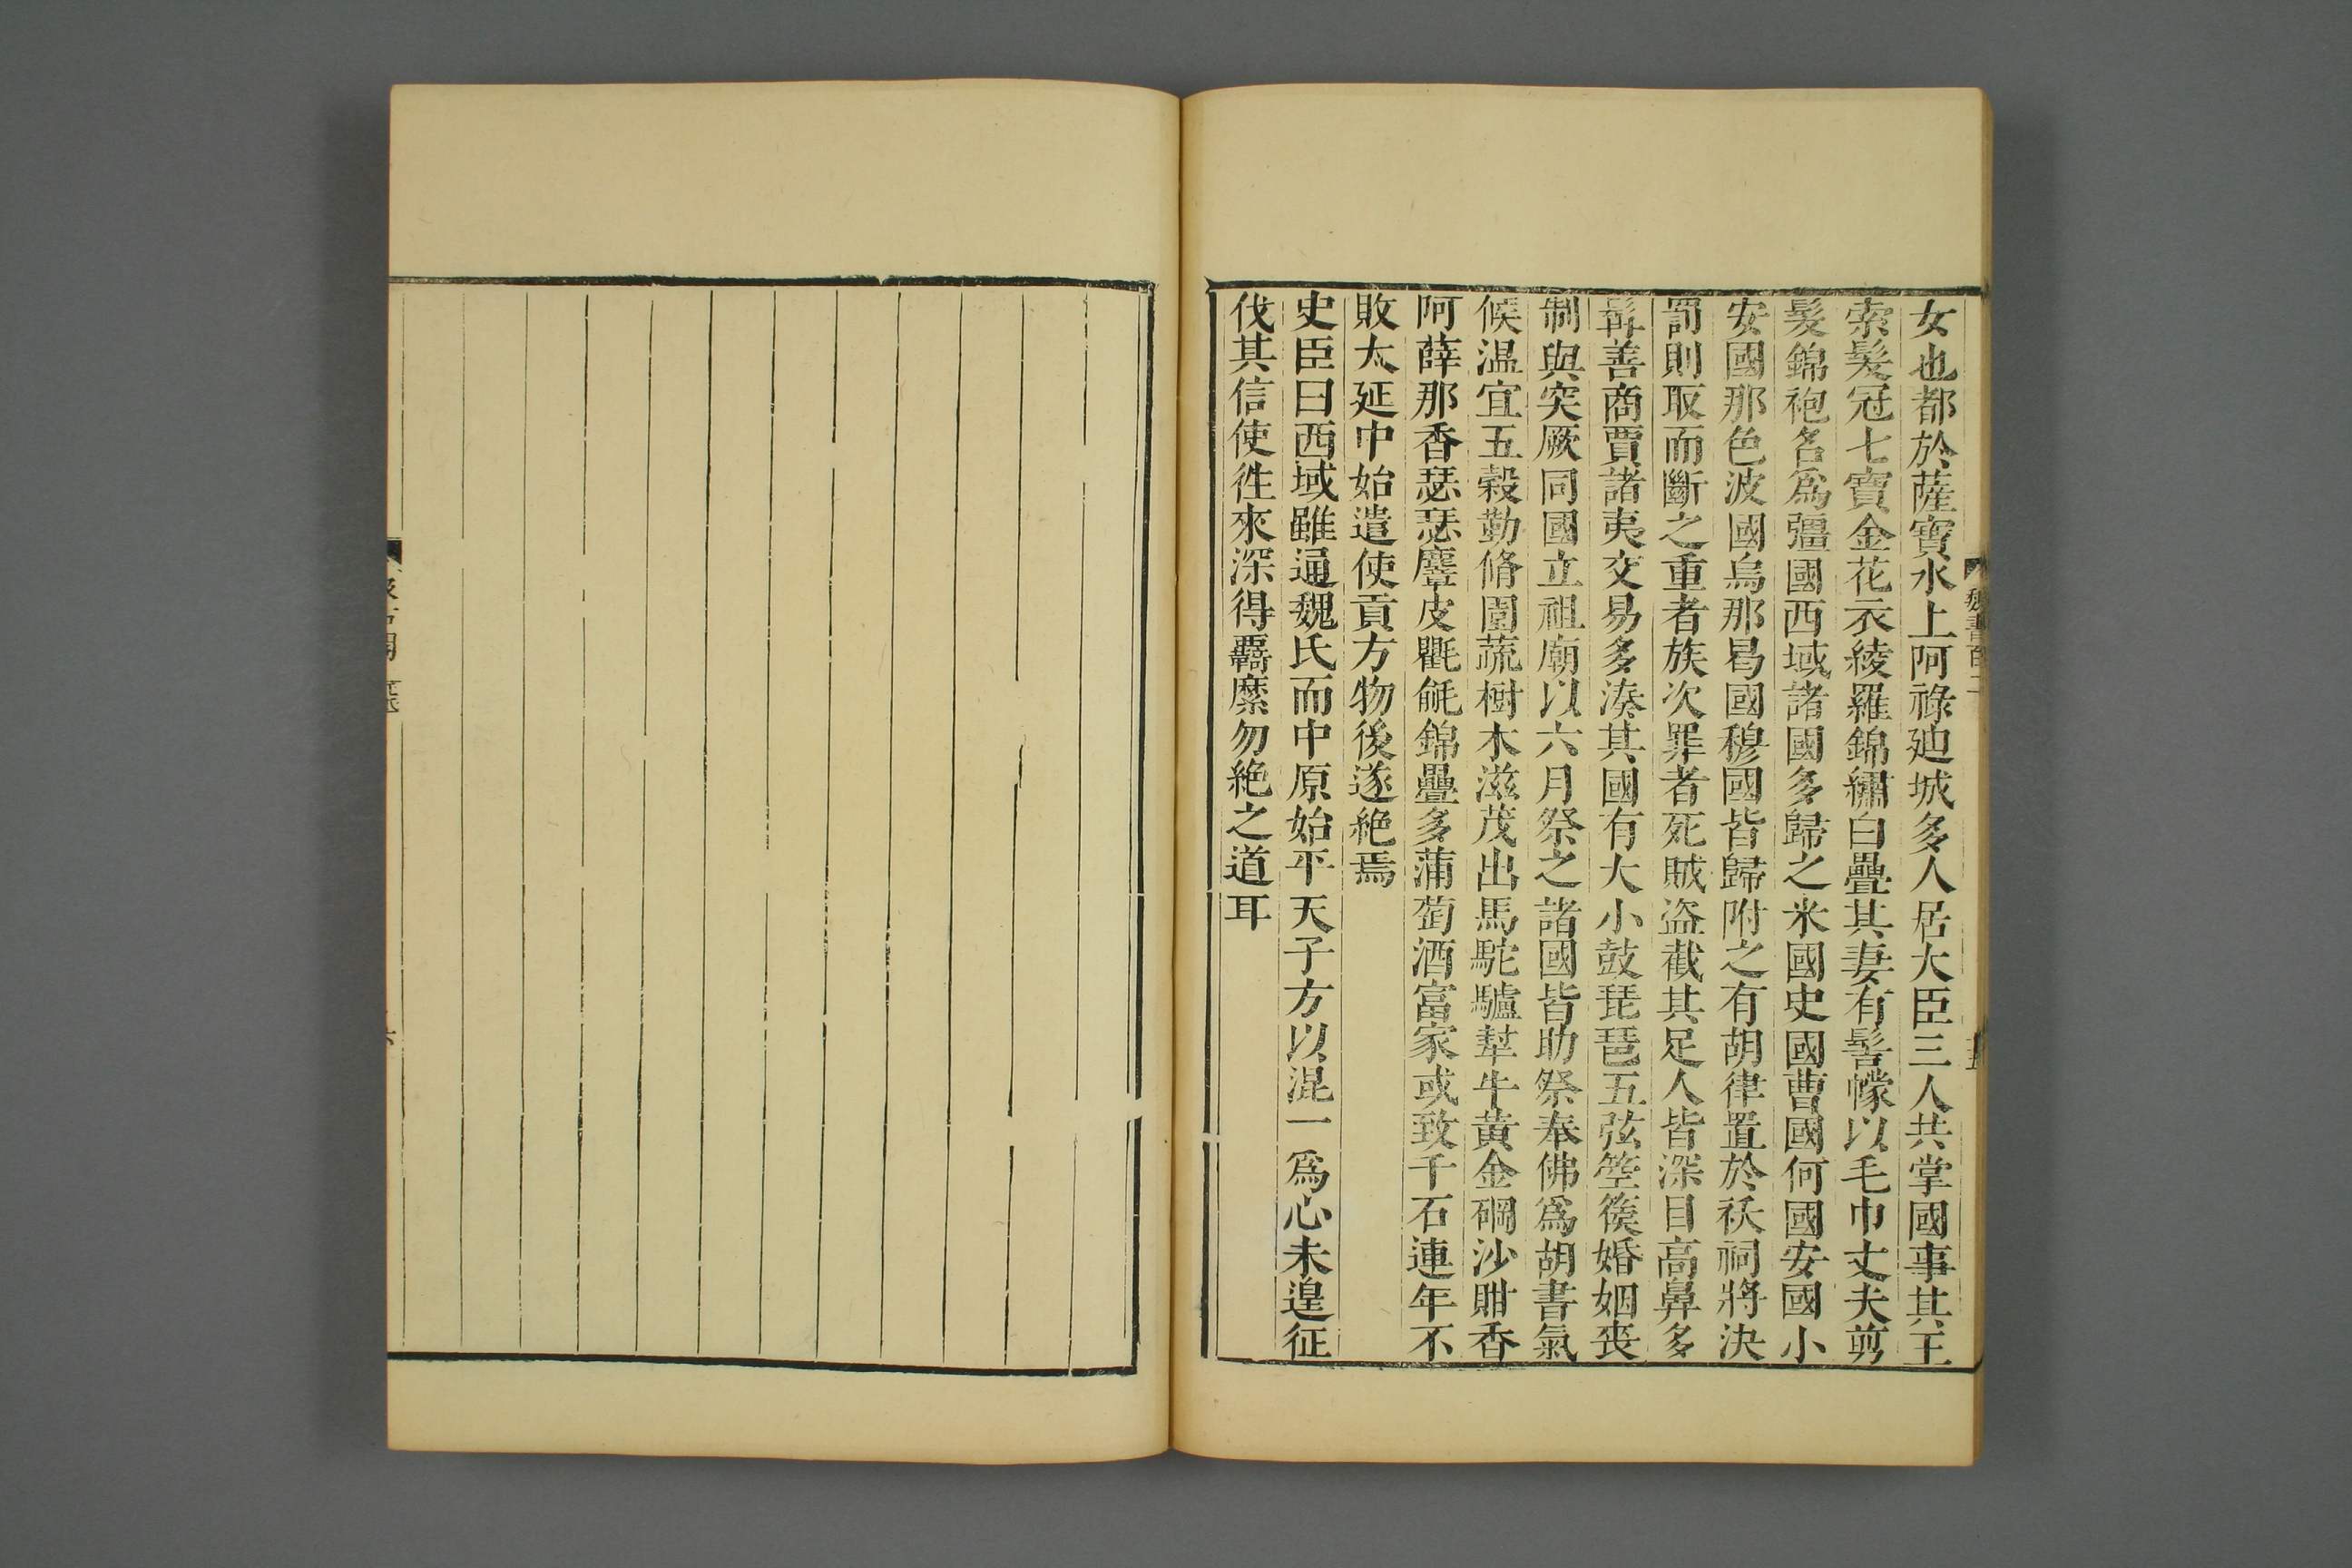 女也都於薩寶水上阿祿廸城多人居大臣三人共掌國事其王
索髮冠七寶金花衣綾羅錦繡白疊其妻有髻幪以毛巾丈夫剪
髮錦袍名爲彊國西域諸國多歸之米國史國曹國何國安國小
安國那色波國烏那曷國穆國皆歸附之有胡律置於祅祠將決
罰則取而斷之重者族次罪者死賊盜截其足人皆深目高鼻多
髯善商賈諸夷交易多湊其國有大小鼓琵琶五弦箜篌婚姻喪
制與突厥同國立祖廟以六月祭之諸國皆助祭奉佛爲胡書氣
候温宜五榖勤脩園蔬樹木滋茂出馬駝驢犎牛黄金硇沙䝱香
阿薛那香瑟瑟麞皮氍㲪錦疊多蒲萄酒富家或致千石連年不
敗太延中始遣使貢方物後遂絶焉
史臣曰西域雖通魏氏而中原始平天子方以混一爲心未遑征
伐其信使徃來深得羈縻勿絶之道耳
魏書百二